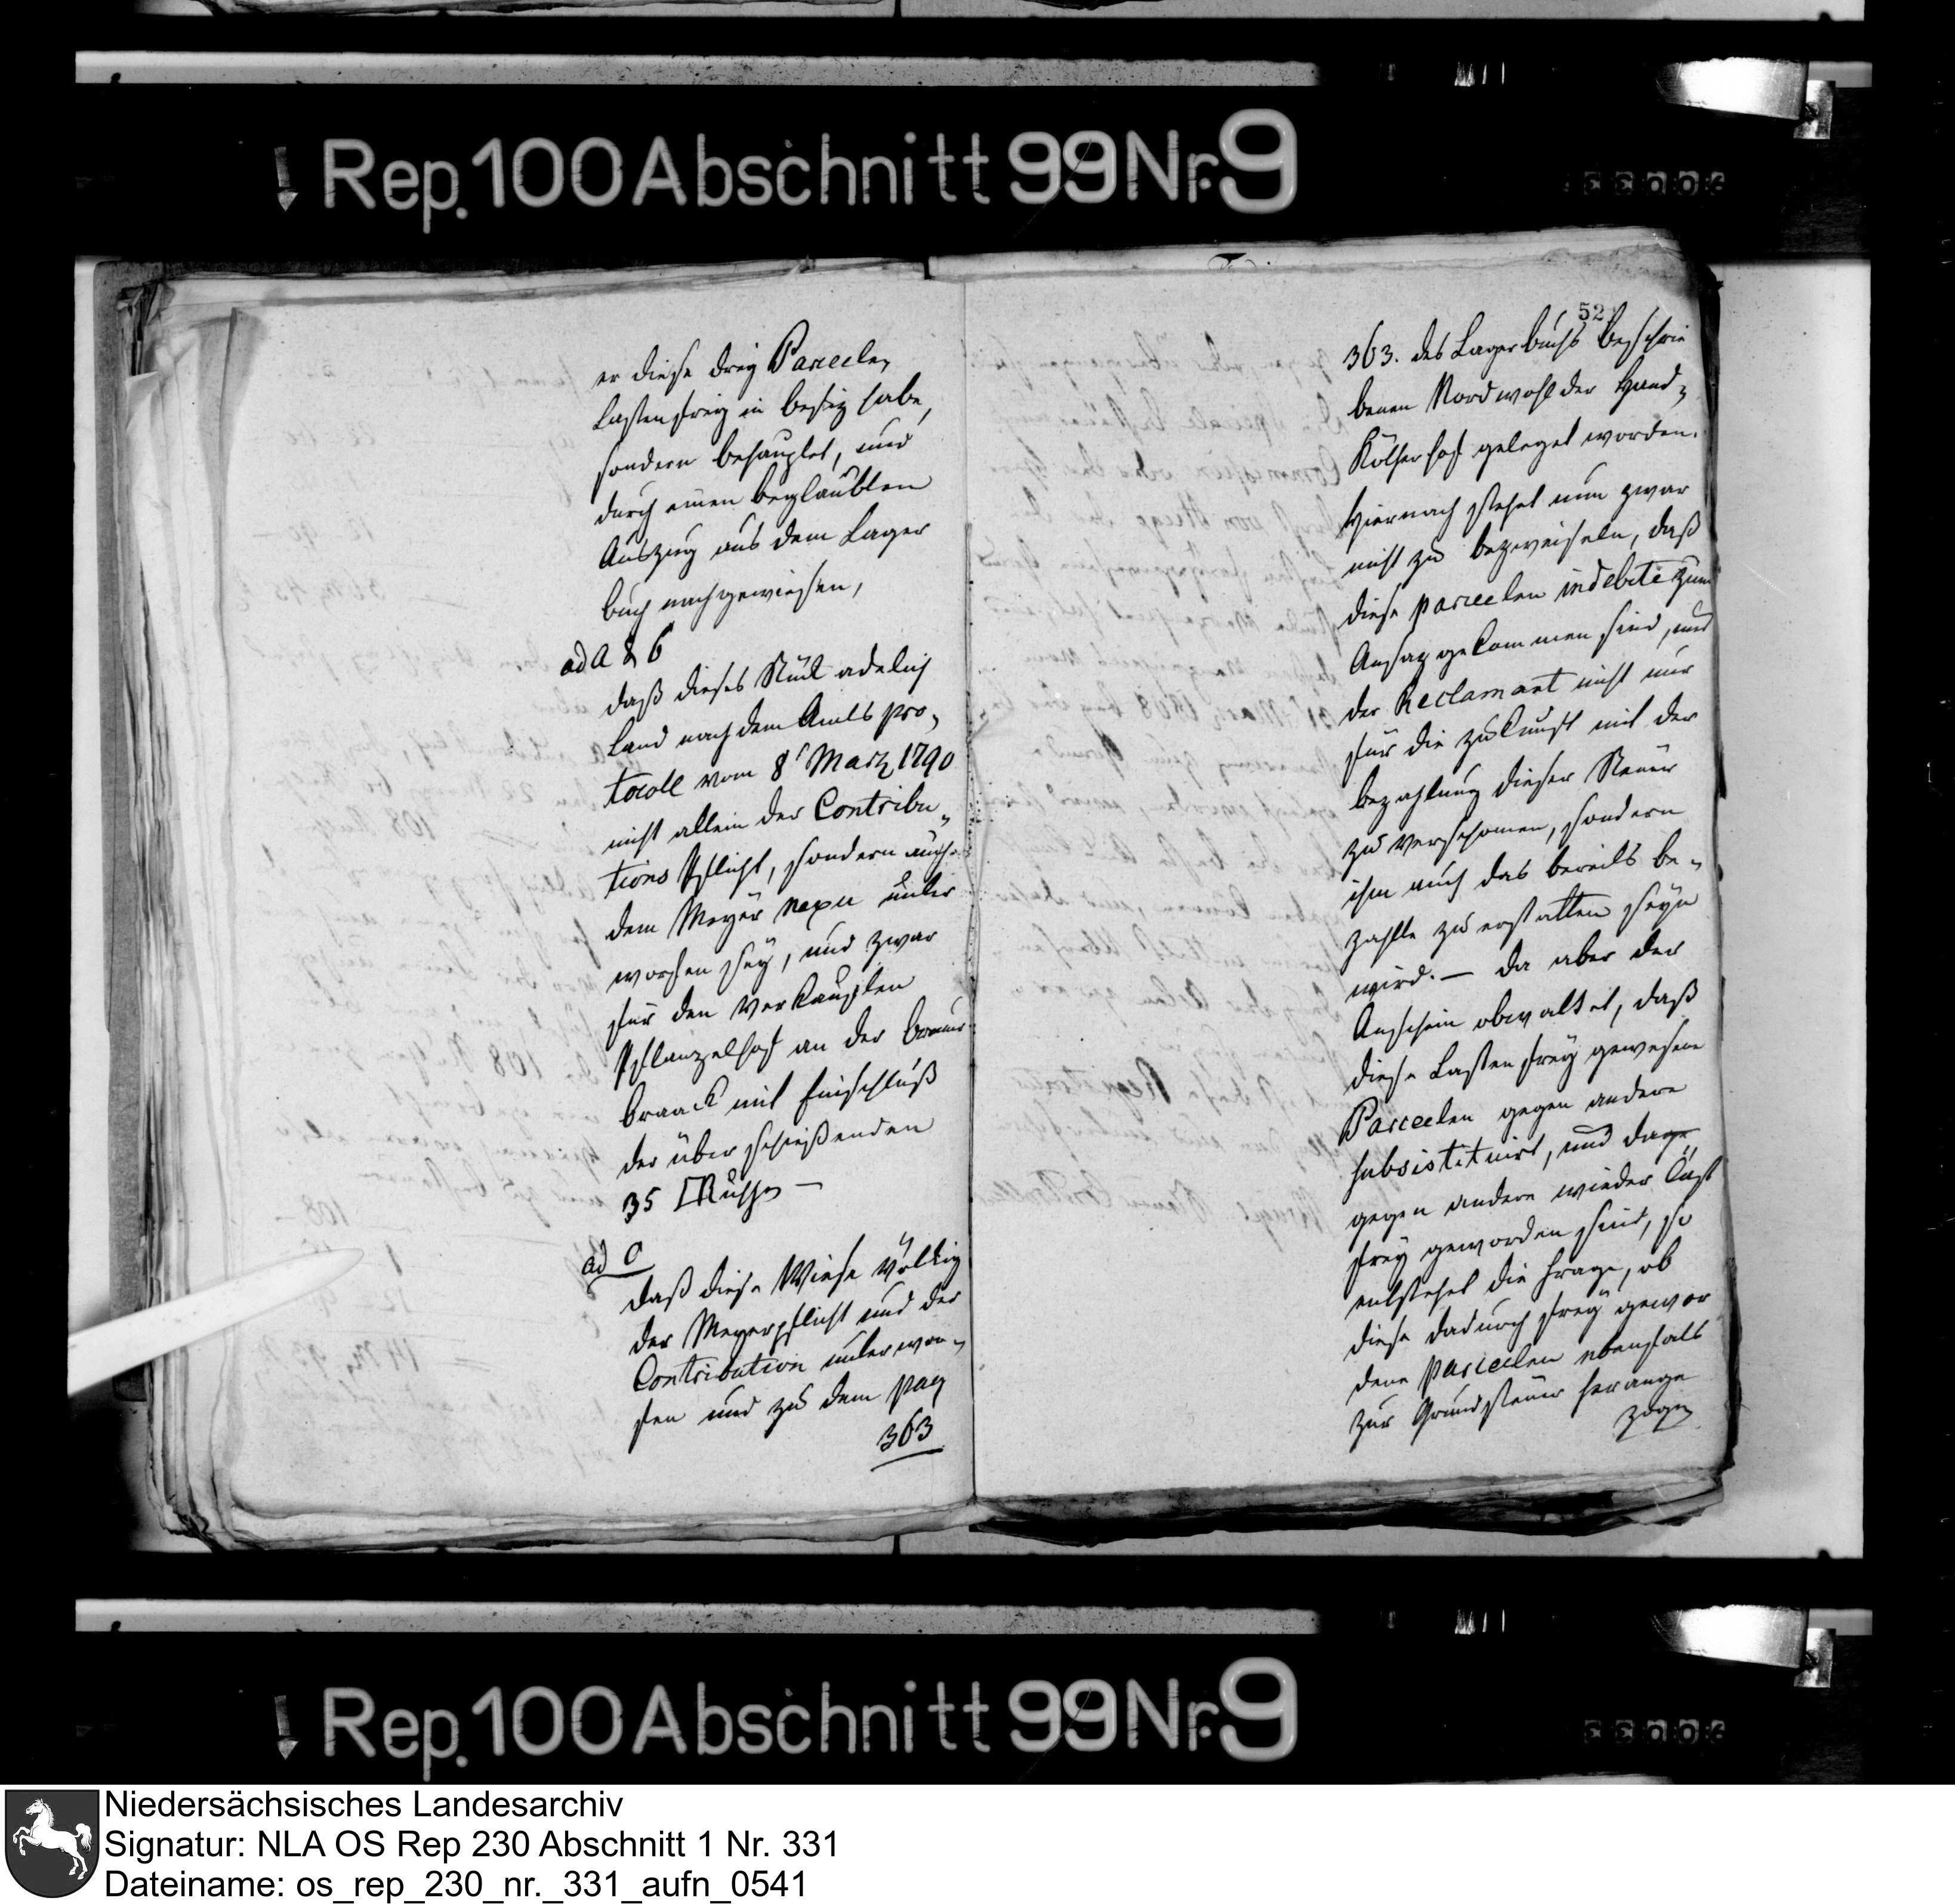 Rep. 100 Abschnitt 99 Nr. 9
er diese drey Parcelen
Lastenfrey in besiz habe,
sondern behauptet, und
durch einen beglaubten
Auszug aus dem Lager
buch nachgewiesen,
ad A & b
daß dieses Stück adelich
Land nach dem Amts pro„
tocoll vom 8t Marz 1790
nicht allein der Contribu„
tions Pflicht, sondern auch
dem Meyer nexu unter
worfen sey, und zwar
für den verkauften
an der
braack mit Einschluß
der überschießenden
35 □Ruthen —
ad C
daß diese Wiese völlig
der Meyerpflicht und der
Contribution unterwor„
fen und zu dem pag
363
52
363. des Lagerbuchs beschrie
benen Nordwohlder Hand„
Kötherhof geleget worden.
Hiernach stehet nun zwar
nicht zu bezweifeln, daß
diese parcelen indebite zum
Ansaz gekommen sind, und
der Reclamant nicht nur
für die Zukunft mit der
bezahlung dieser Steuer
zu verschonen, sondern
ihm auch das bereits be„
zahlte zu erstatten seyn
wird. — Da aber der
Anschein obwaltet, daß
diese Lastenfrey gewesene
Parcelen gegen andere
substituirt, und
gegen andere wieder Last
frey geworden sind, so
entstehet die Frage, ob
diese dadurch frey gewor
dene parcelen ebenfalls
zur Grundsteuer herange
zogen
Rep. 100 Abschnitt 99 Nr. 9
Niedersächsisches Landesarchiv
Signatur: NLA OS Rep 230 Abschnitt 1 Nr. 331
Dateiname: os_rep_230_nr._331_aufn_0541